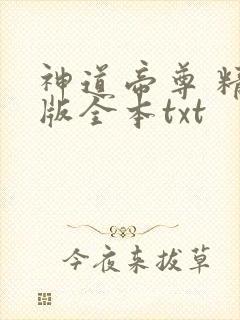 神道帝尊 精
版全本txt
今夜来拔草